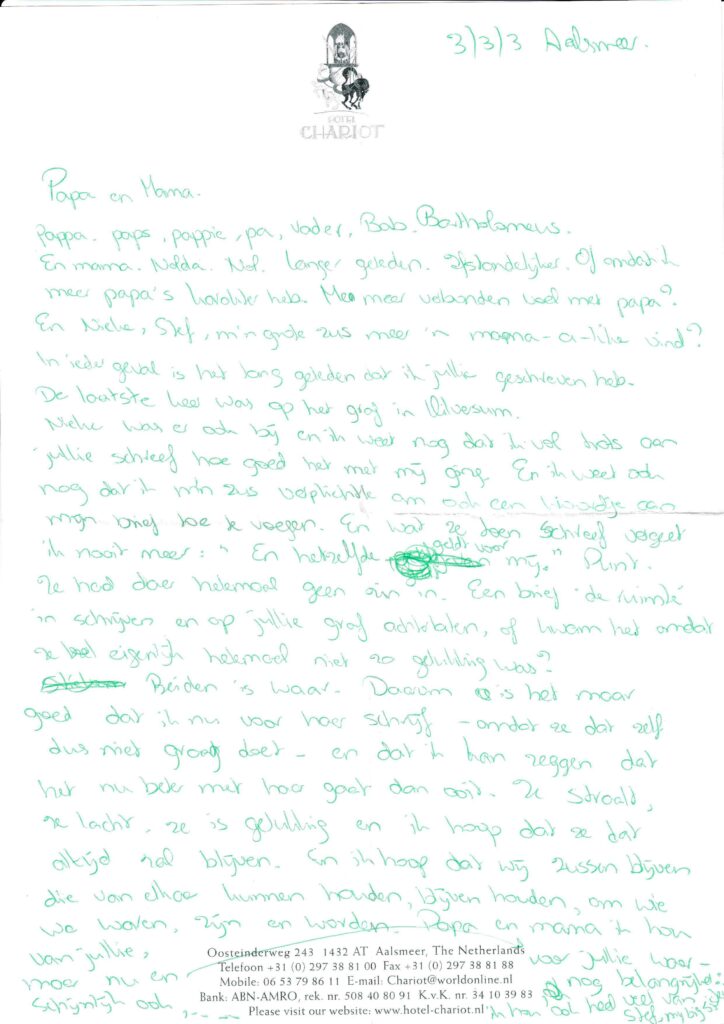 3/3/3 Aalsmeer.
HOTEL
CHARIOT
Papa en Mama.
Pappa. paps, pappie, pa, vader, Bab. Bartholomeus.
En mama. Nolda. Nol. Langer geleden. Afstandelijker. Of omdat ik
meer papa's karakter heb. Me meer verbonden voel met papa?
En Nieke, Stef, m'n grote zus meer 'n mama-a-like vind?
In ieder geval is het lang geleden dat ik jullie geschreven heb.
De laatste keer was op het graf in Hilversum.
Nieke was er ook bij en ik weet nog dat ik vol trots aan
jullie schreef hoe goed het met mij ging. En ik weet ook
nog dat ik m'n zus verplichtte om ook een woordje aan
mijn brief toe te voegen. En wat ze toen schreef vergeet
ik nooit meer: "En hetzelfde geldt voor mij." Punt.
Ze had daar helemaal geen zin in. Een brief de ruimte
in schrijven en op jullie graf achterlaten, of kwam het omdat
ze eigenlijk helemaal niet zo gelukkig was?
Beiden is waar. Daarom is het maar
goed dat ik nu voor haar schrijf - omdat ze dat zelf
dus niet graag doet - en dat ik kan zeggen dat
het nu beter met haar gaat dan ooit. Ze straalt,
ze lacht, ze is gelukkig en ik hoop dat ze dat
altijd zal blijven. En ik hoop dat wij zussen blijven
die van elkaar kunnen houden, blijven houden, om wie
we waren, zijn en worden. Papa en mama ik hou
van jullie, voor jullie waar-
maar nu en nog belangrijker:
schijnlijk ook ik hou ook heel veel van
Stef, mijn big sister
Oosteinderweg 243 1432 AT Aalsmeer, The Netherlands
Telefoon +31 (0) 297 38 81 00 Fax +31 (0) 297 38 81 88
Mobile: 06 53 79 86 11 E-mail: Chariot@worldonline.nl
Bank: ABN-AMRO, rek. nr. 508 40 80 91 K.v.K. nr. 34 10 39 83
Please visit our website: www.hotel-chariot.nl